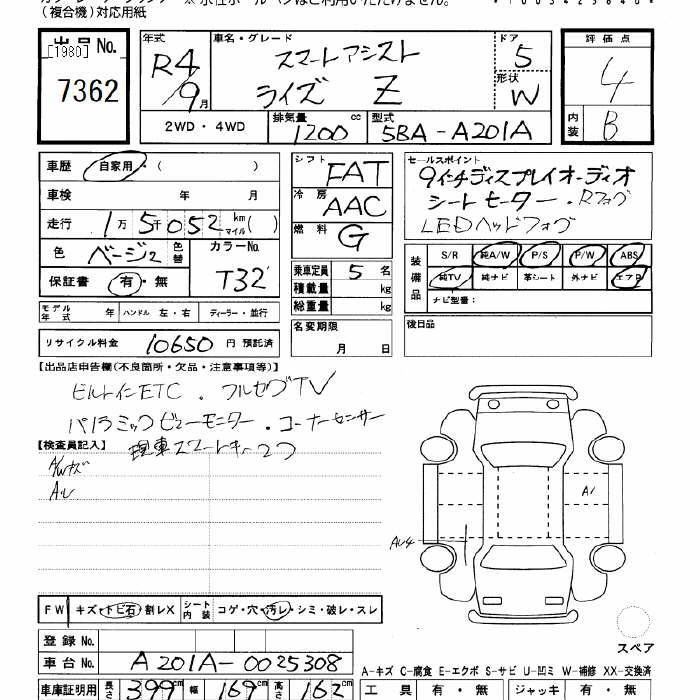 (複合機)対応用紙
出品No. [1980] 7362
年式 R4/9月
車名・グレード スマートアシスト
ライズ Z
ドア 5
形状 W
2WD・4WD
排気量 1200 cc
型式 5BA-A201A
評価点 4
内装 B
車歴 自家用・( )
車検 年 月
走行 1万5千052km(マイル)( )
色 ベージュ2 色替
カラーNo. T32
保証書 有・無
モデル年式 年 ハンドル 左・右 ディーラー・並行
リサイクル料金 10650 円 預託済
シフト FAT
冷房 AAC
燃料 G
乗車定員 5 名
積載量 kg
総重量 kg
名変期限
月 日
セールスポイント
9インチディスプレイオーディオ
シートヒーター・Rフォグ
LEDヘッドフォグ
装備品 S/R 純A/W P/S P/W ABS
純TV 純ナビ 革シート 外ナビ エアB
ナビ型番:
後日品
【出品店申告欄(不良箇所・欠品・注意事項等)】
ビルトインETC・フルセグTV
パノラミックビューモニター・コーナーセンサー
現車スマートキー2つ
【検査員記入】
A/Wキズ
A・U
A1
AU4
FW キズ・トビ石・割レX シート内装 コゲ・穴・汚レ・シミ・破レ・スレ
登録No.
車台No. A201A-0025308
スペア
A-キズ C-腐食 E-エクボ S-サビ U-凹ミ W-補修 XX-交換済
車庫証明用 長さ 399cm 幅 169cm 高さ 162cm
工具 有・無 ジャッキ 有・無